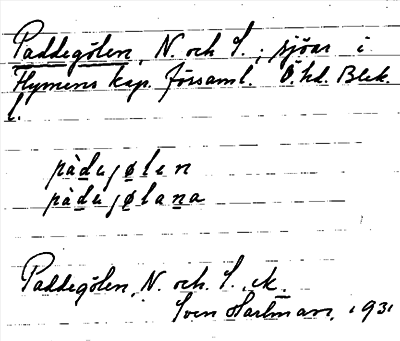 Paddegölen, N. och S.; sjöar i
Hymens kap. församl. Ö. hd. Blek.
l.
pàdejølen
pàdejølana
Paddegölen, N. och. S. ek.
Sven Hartman, 1931